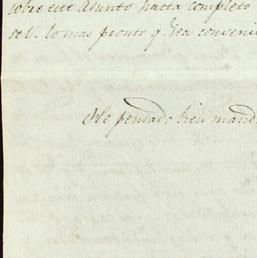 sobre este Asunto hasta completo
de V. lo mas pronto q. sea conveni
He pensado bien mand